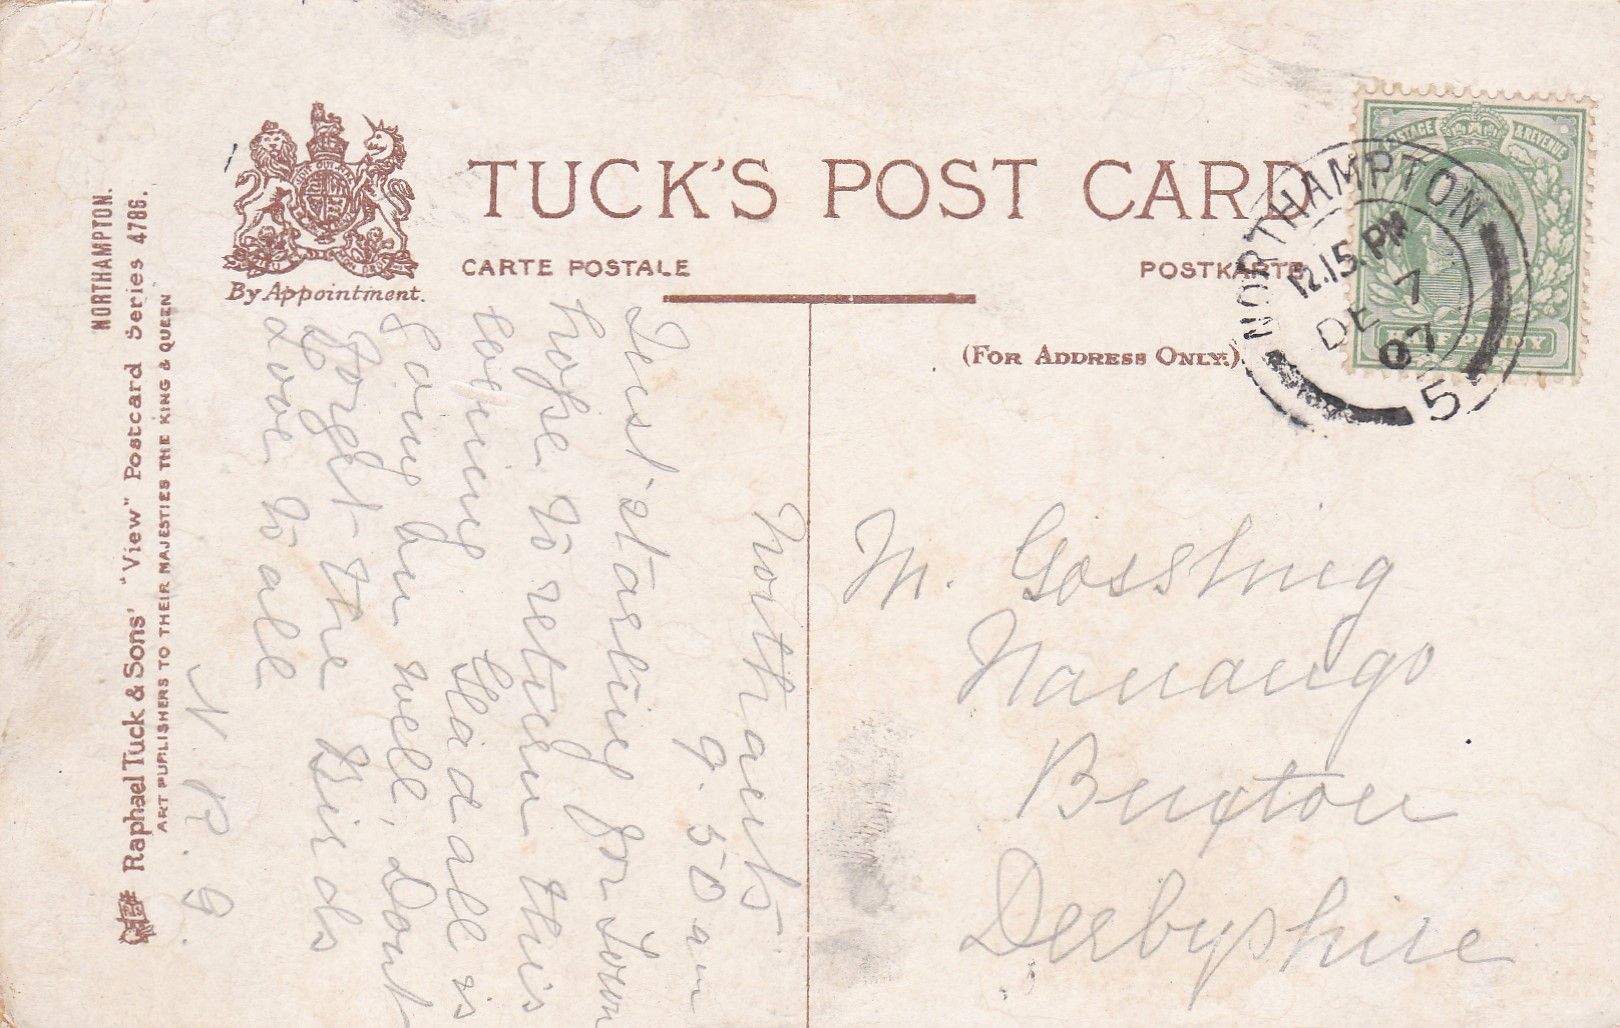 TUCK'S POST CARD
CARTE POSTALE
POSTKARTE
By Appointment.
(FOR ADDRESS ONLY.)
POSTAGE & REVENUE
HALFPENNY
NORTHAMPTON
12.15.PM
DE 7
07
5
NORTHAMPTON.
Raphael Tuck & Sons' "View" Postcard Series 4786.
ART PUBLISHERS TO THEIR MAJESTIES THE KING & QUEEN
Northants
9.50 am
Just starting for Town
hope to return this
evening. Glad all is
going on well, Dont
forget the Birds
Love to all
N. R. G.
M. Gossling
Nanango
Buxton
Derbyshire